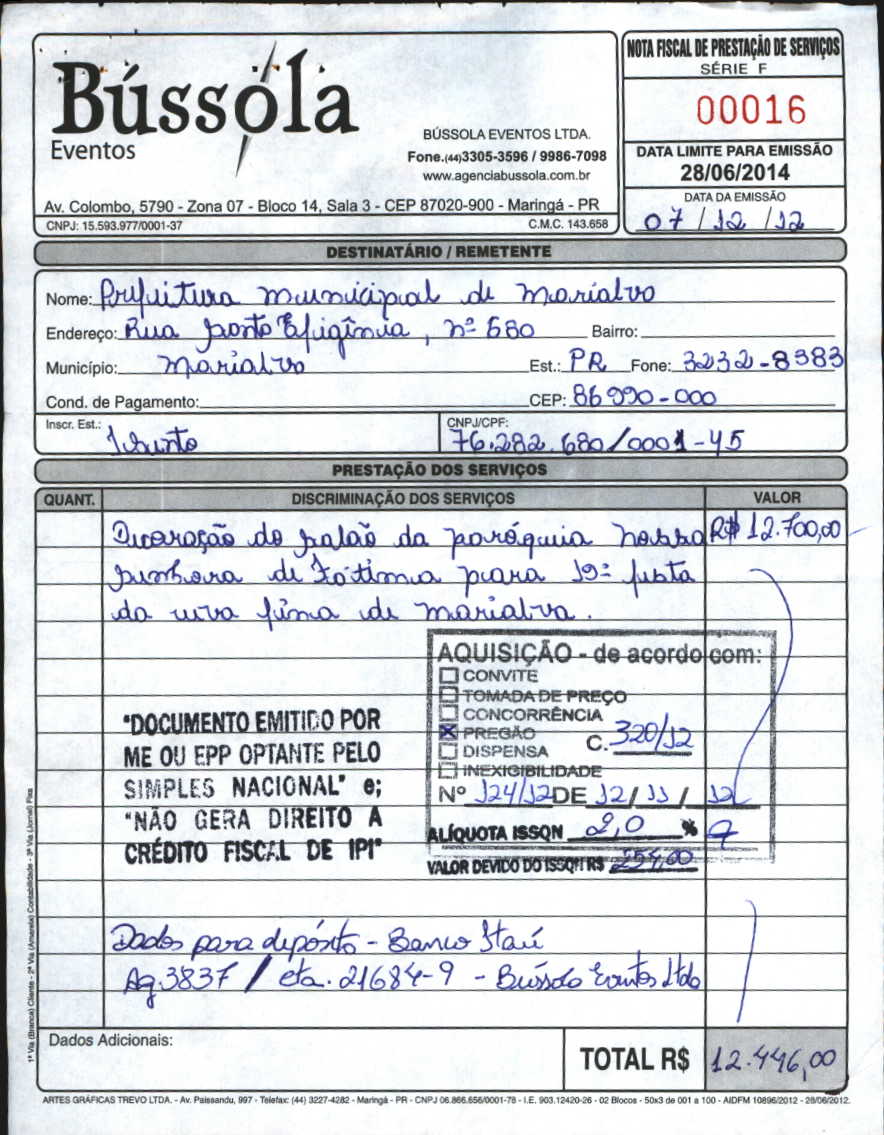 Bússola
Eventos
BÚSSOLA EVENTOS LTDA.
Fone.(44)3305-3596 / 9986-7098
www.agenciabussola.com.br
Av. Colombo, 5790 - Zona 07 - Bloco 14, Sala 3 - CEP 87020-900 - Maringá - PR
CNPJ: 15.593.977/0001-37 C.M.C. 143.658
NOTA FISCAL DE PRESTAÇÃO DE SERVIÇOS
SÉRIE F
00016
DATA LIMITE PARA EMISSÃO
28/06/2014
DATA DA EMISSÃO
07/12/12
DESTINATÁRIO / REMETENTE
Nome: Prefeitura municipal de marialva
Endereço: Rua Santa Efigênia, nº 680 Bairro:
Município: marialva Est.: PR Fone: 3232-8383
Cond. de Pagamento: CEP: 86990-000
Inscr. Est.: Isento CNPJ/CPF: 76.282.680/0001-45
PRESTAÇÃO DOS SERVIÇOS
QUANT. DISCRIMINAÇÃO DOS SERVIÇOS VALOR
Decoração do salão da paróquia nossa R$ 12.700,00
senhora de Fátima para 19ª festa
da uva fina de marialva.
AQUISIÇÃO - de acordo com:
CONVITE
TOMADA DE PREÇO
CONCORRÊNCIA
PREGÃO C. 320/12
DISPENSA
INEXIGIBILIDADE
Nº 124/12 DE 12/11/12
ALÍQUOTA ISSQN 2,0 %
VALOR DEVIDO DO ISSQN R$ 254,00
"DOCUMENTO EMITIDO POR
ME OU EPP OPTANTE PELO
SIMPLES NACIONAL" e;
"NÃO GERA DIREITO A
CRÉDITO FISCAL DE IPI"
Dados para depósito - Banco Itaú
Ag.3837 / cta. 21684-9 - Bússola Eventos Ltda
Dados Adicionais:
TOTAL R$ 12.446,00
1ª Via (Branca) Cliente - 2ª Via (Amarela) Contabilidade - 3ª Via (Jornal) Fixa
ARTES GRÁFICAS TREVO LTDA. - Av. Paissandu, 997 - Telefax: (44) 3227-4282 - Maringá - PR - CNPJ 06.866.656/0001-78 - I.E. 903.12420-26 - 02 Blocos - 50x3 de 001 a 100 - AIDFM 10896/2012 - 28/06/2012.